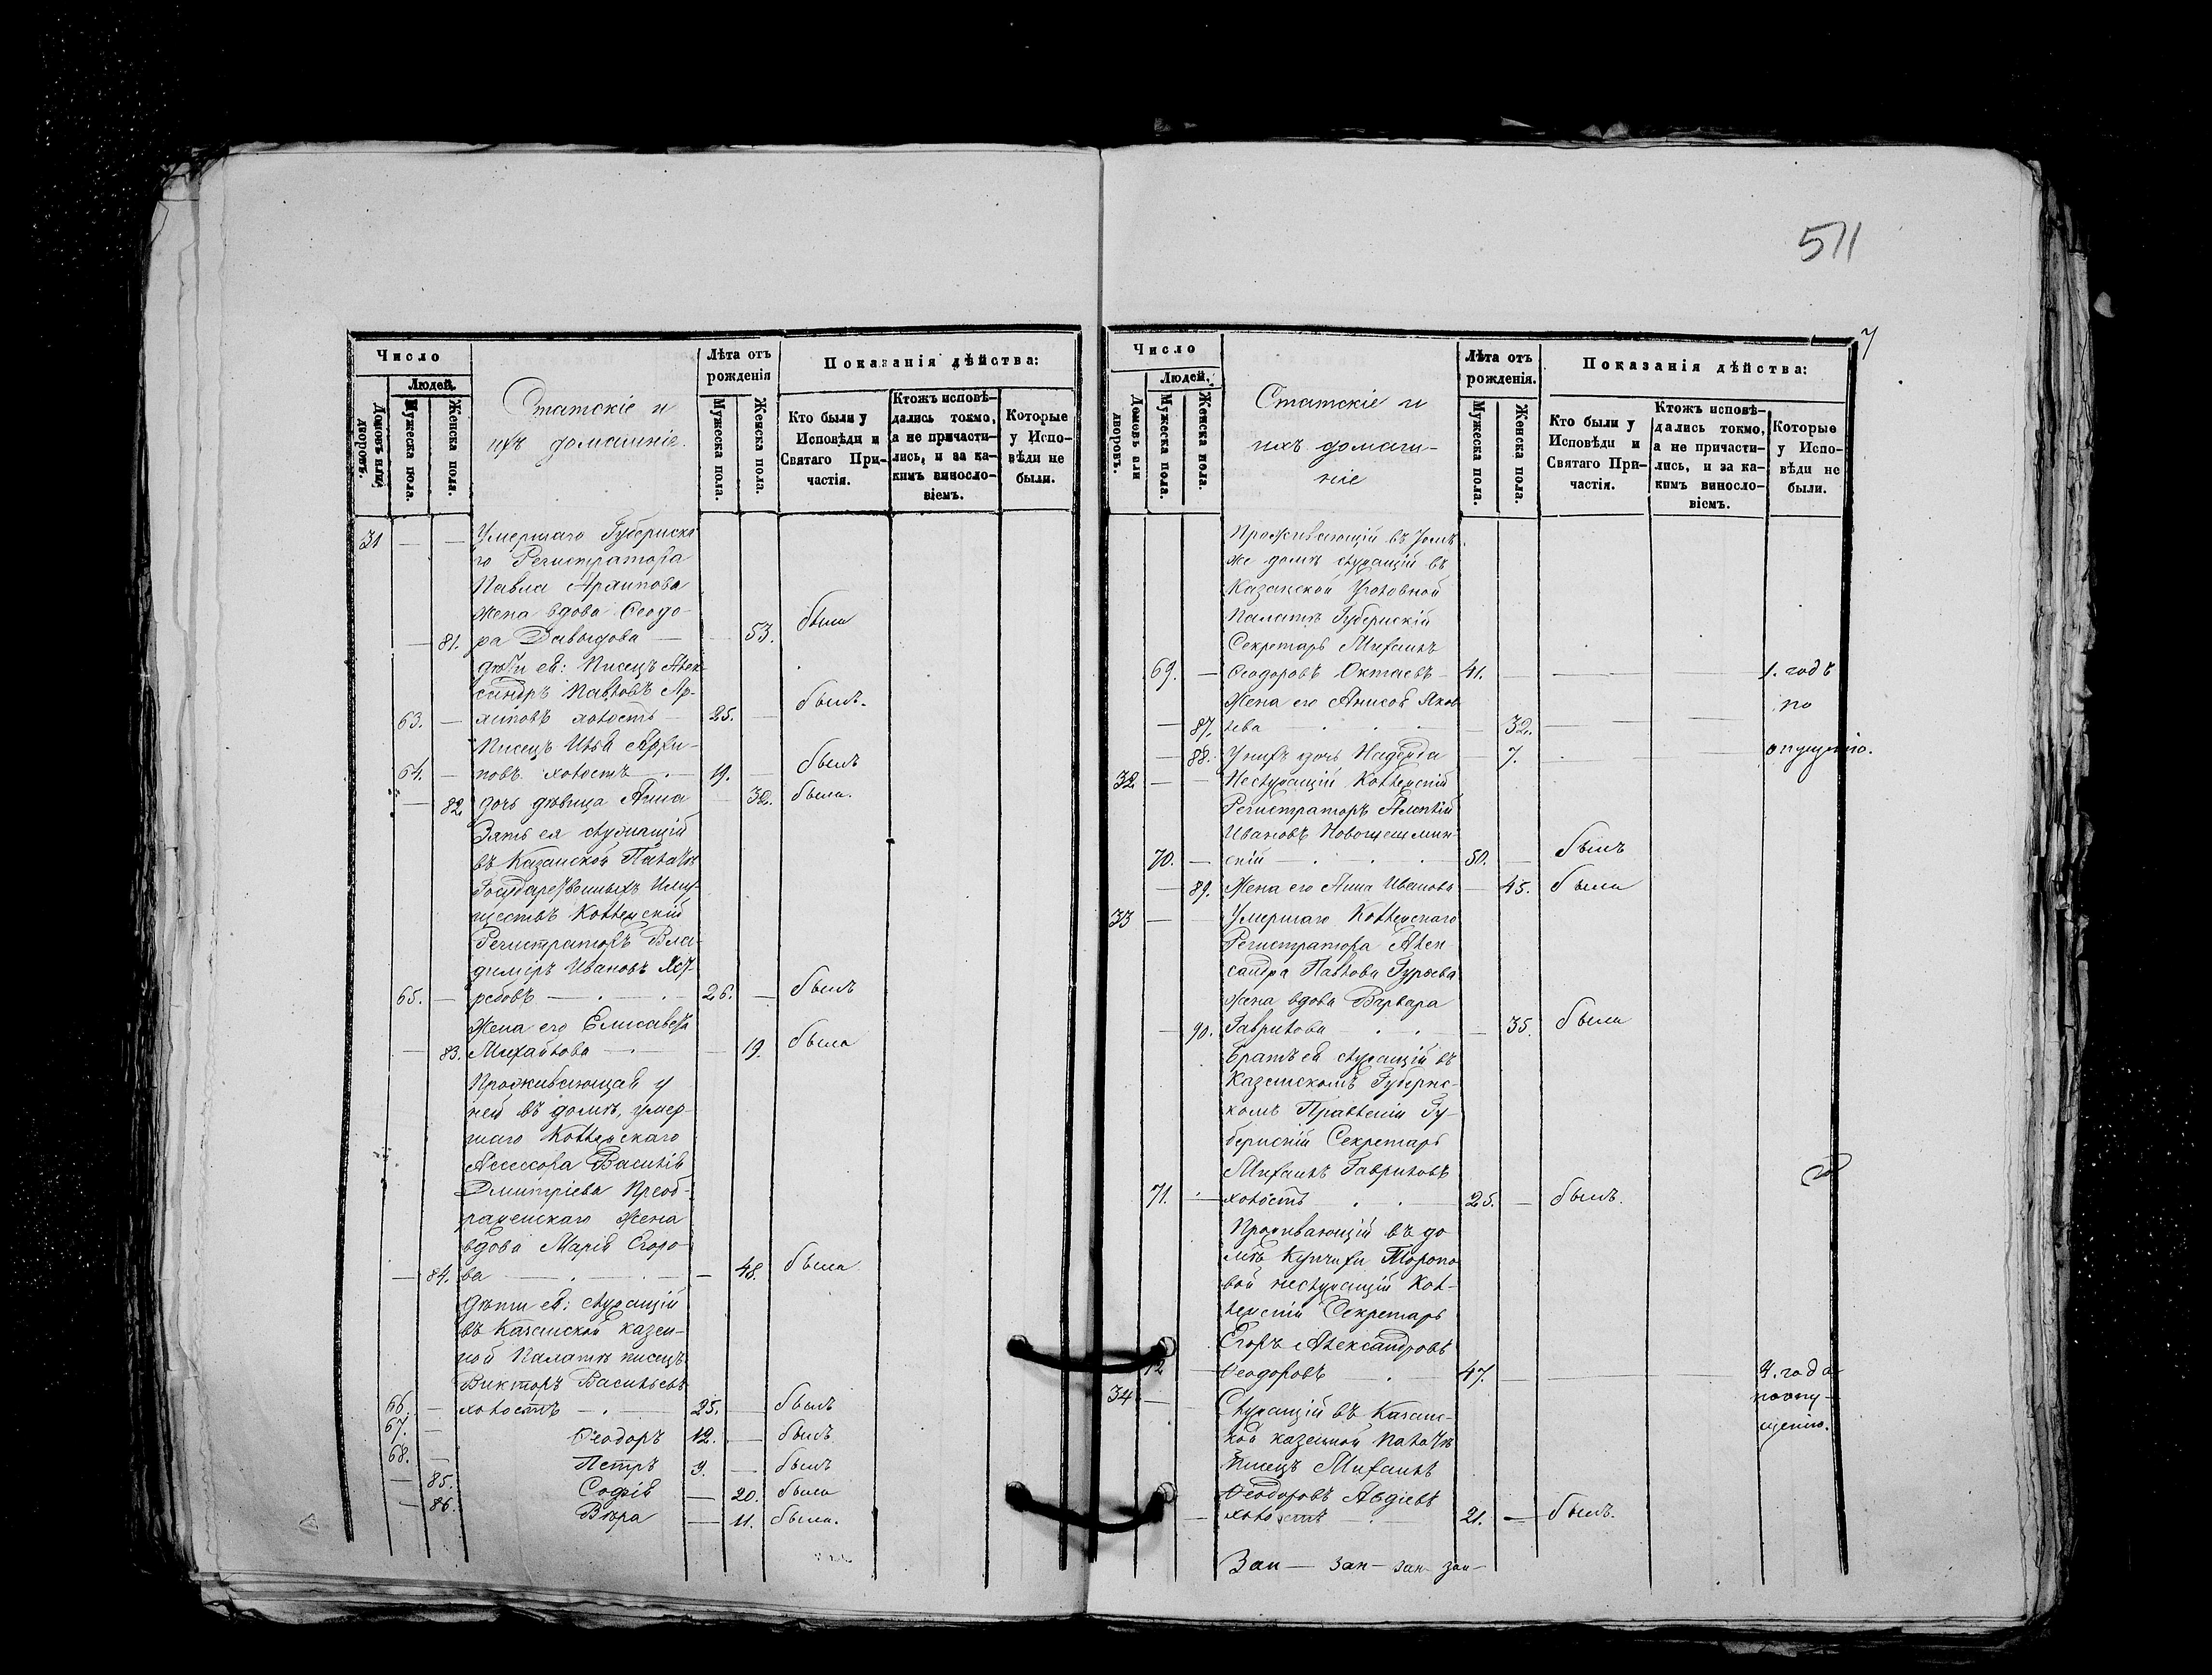 511
7
Число
Людей.
Домовъ или дворовъ.
Мужеска пола.
Женска пола.
Статскіе и
ихъ домашніе.
Лѣта отъ рожденія
Мужеска пола.
Женска пола.
Показанія дѣйства:
Кто были у Исповѣди и Святаго Причастія.
Ктожъ исповѣдались токмо, а не причастились, и за какимъ винословіемъ.
Которые у Исповѣди не были.
31 — — Умершаго Губернска
го Регистратора
Павла Архипова
жена вдова Ѳеодо-
— 81. ра Давыдова — — 53. была
дѣти ея: Писецъ Алек
сандръ Павловъ Ар-
63. — хиповъ холостъ — 25. — былъ.
Писецъ Илья Архи-
64. — повъ холостъ — 19. — былъ
— 82. дочь дѣвица Анна — 32. была.
Зять ея служащій
въ Казанской Палатѣ
Государственныхъ Иму-
ществъ Коллежскій
Регистраторъ Вла-
диміръ Ивановъ
65. — ребовъ — 26. — былъ
Жена его Елисавета
— 83. Михайлова — — 19. была
Проживающая у
ней въ домѣ, умер-
шаго Коллежскаго
Асессора Василія
Дмитріева Преоб-
раженскаго жена
вдова Марія Егоро-
— 84. ва — — 48. была
Дѣти ея: служащій
въ Казанской казен-
ной Палатѣ писецъ
Викторъ Васильевъ
66. — холостъ — 25. — былъ
67. — Ѳеодоръ 12. — былъ
68. — Петръ 9. — былъ
— 85. Софія — 20. была
— 86. Вѣра — 11. была.
Число
Людей.
Домовъ или дворовъ.
Мужеска пола.
Женска пола.
Статскіе и
ихъ домаш-
ніе
Лѣта отъ рожденія.
Мужеска пола.
Женска пола.
Показанія дѣйства:
Кто были у Исповѣди и Святаго Причастія.
Ктожъ исповѣдались токмо, а не причастились, и за какимъ винословіемъ.
Которые у Исповѣди не были.
Проживающій въ томъ
же домѣ служащій въ
Казанской Уголовной
Палатѣ Губернскій
Секретарь Михаилъ
69. — Ѳеодоровъ Октаевъ — 41. — — — 1. годъ
Жена его Анисья Яков по
— 87. лева — 32. — —
— 88. У нихъ дочь Надежда — 7. — — опущенію.
32 — — Неслужащій Коллежскій
Регистраторъ Алексѣй
Ивановъ Новошешмин-
70. — скій — 50. — былъ
— 89. Жена его Анна Иванова — 45. была
33 — — Умершаго Коллежскаго
Регистратора Алек
сандра Павлова Гурьева
жена вдова Варвара
— 90. Гаврилова — 35. была
Братъ ея служащій въ
Казанскомъ Губернс-
комъ Правленіи Гу-
бернскій Секретарь
Михаилъ Гавриловъ
71. — холостъ 25. — былъ.
Проживающій въ до
мѣ Купчихи Торопо
вой неслужащій Кол-
лежскій Секретарь
Егоръ Александровъ
72 — Ѳеодоровъ 47. — — — 4. года
34 — — Служащій въ Казанс- поопу-
кой казенной Палатѣ щенію.
Писецъ Михаилъ
Ѳеодоровъ Авдіевъ
— холостъ — 21. — былъ.
Зап — зап — зап — зап —